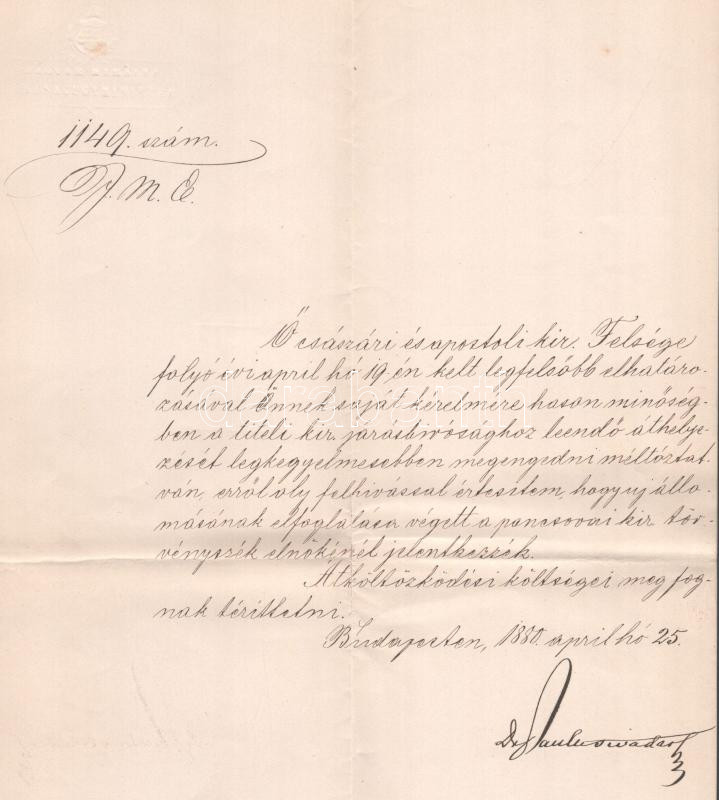 1149. szám.
I. M. E.
Ő császári és apostoli kir. Felsége
folyó évi april hó 19-én kelt legfelsőbb elhatáro-
zásával Önnek saját kérelmére hason minőség-
ben a titeli kir. járásbirósághoz leendő áthelye-
zését legkegyelmesebben megengedni méltóztat-
ván, erről oly felhivással értesitem, hogy uj állo-
másának elfoglalása végett a pancsovai kir. tör-
vényszék elnökénél jelentkezzék.
Átköltözködési költségei meg fog-
nak térittetni.
Budapesten, 1880. april hó 25.
Dr
darabanth